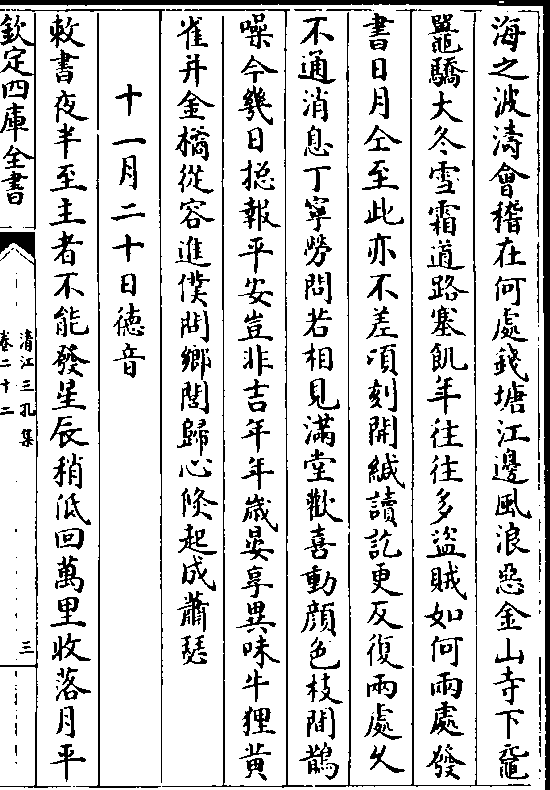 海之波濤會稽在何處錢塘江邊風浪惡金山寺下黿
鼉驕大冬雪霜道路塞飢年往往多盜賊如何兩處發
書日月仝至此亦不差頃刻開緘讀訖更反復兩處久
不通消息丁寧勞問若相見滿堂歡喜動顔色枝間鵲
噪今幾日揔報平安豈非吉年年歲晏享異味牛狸黄
雀并金橘從容進僕問鄉閭歸心倐起成蕭瑟
十一月二十日徳音
敕書夜半至主者不能發星辰稍低回萬里收落月平
欽定四庫全書
清江三孔集
卷二十二
三